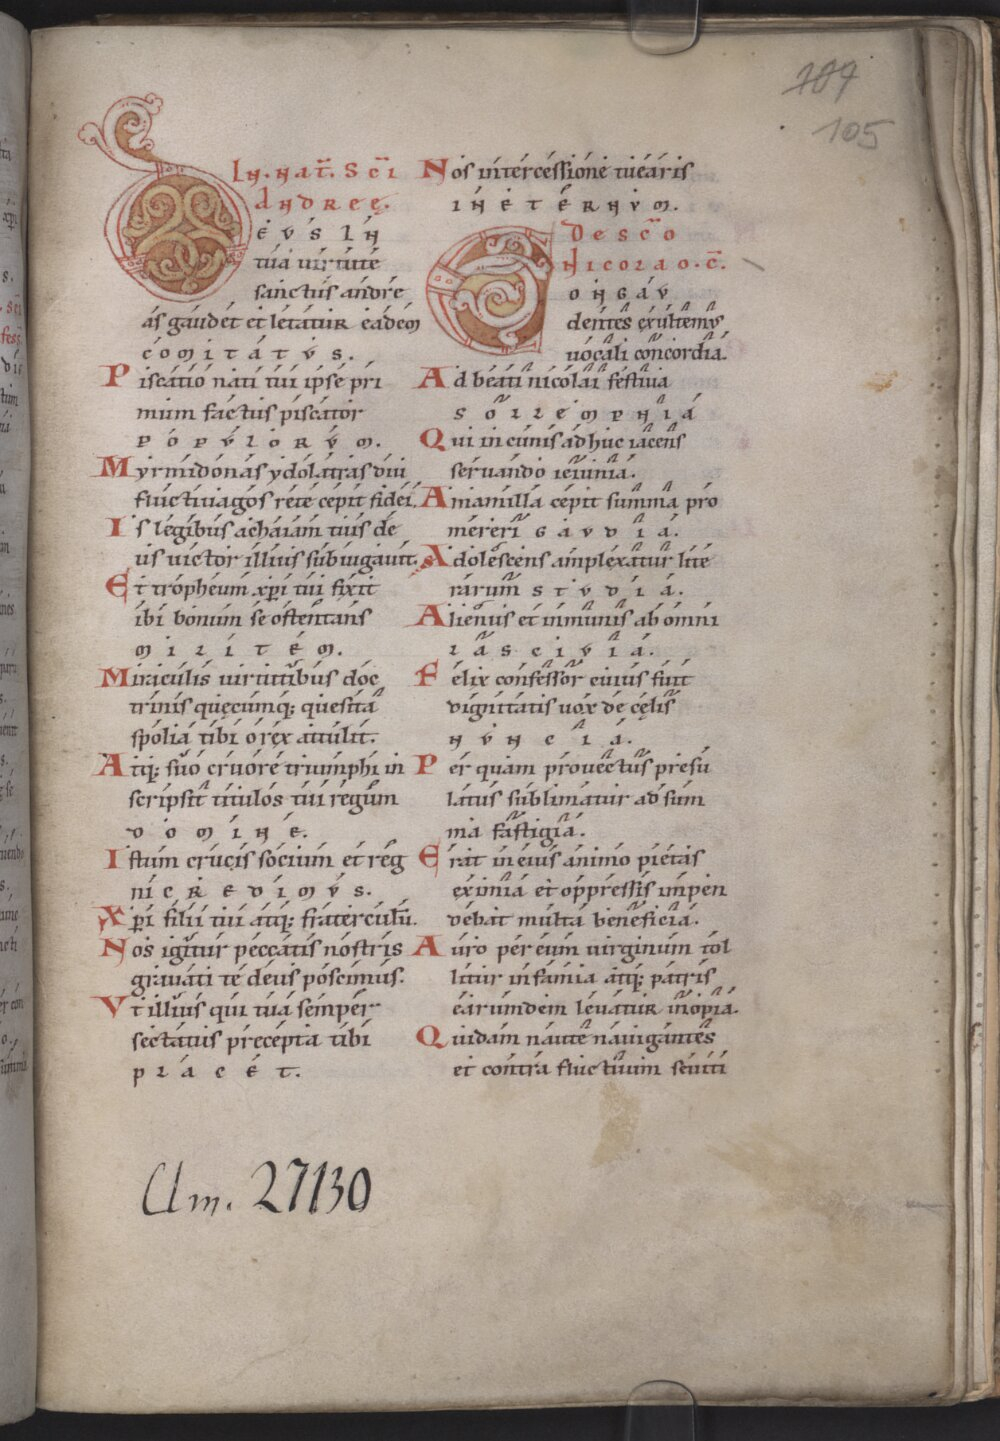 109
105
IN. NAT. SCI
ANDREĘ.
DEUS IN
tua uirtute
sanctus andre
as gaudet et letatur eadem
COMITATUS.
Piscatio nati tui ipse pri
mum factus piscator
POPULORUM.
Myrmidonas ydolatras diu
fluctiuagos rete cepit fidei.
Is legibus achaiam tuis de
uis uictor illius subiugauit.
Et tropheum xpi tui fixit
ibi bonum se ostentans
MILITEM.
Miraculis uirtutibus doc
trinis quęcumq; quesita
spolia tibi o rex attulit.
Atq; suo cruore triumphi in
scripsit titulos tui regum
DOMINE.
Istum crucis socium et reg
ni CREDIMUS.
Xpi filii tui atq; fraterculū.
Nos igitur peccatis nostris
grauati te deus poscimus.
Vt illius qui tua semper
sectatus precepta tibi
PLACET.
Nos intercessione tuearis
IN ETERNUM.
DE SCO
NICOLAO. C.
CONGAU
dentes exultemus
uocali concordia.
Ad beati nicolai festiua
SOLLEMPNIA
Qui in cunis adhuc iacens
seruando ieiunia.
A mamilla cepit summa pro
mereri GAUDIA.
Adolescens amplexatur litte
rarum STUDIA.
Alienus et inmunis ab omni
LASCIVIA.
Felix confessor cuius fuit
dignitatis uox de cęlis
NUNCIA.
Per quam prouectus presu
latus sublimatur ad sum
ma fastigia.
Erat in eius animo pietas
eximia et oppressis impen
debat multa beneficia.
Auro per eum uirginum tol
litur infamia atq; patris
earumdem leuatur inopia.
Quidam naute nauigantes
et contra fluctuum seuiti
Clm. 27130